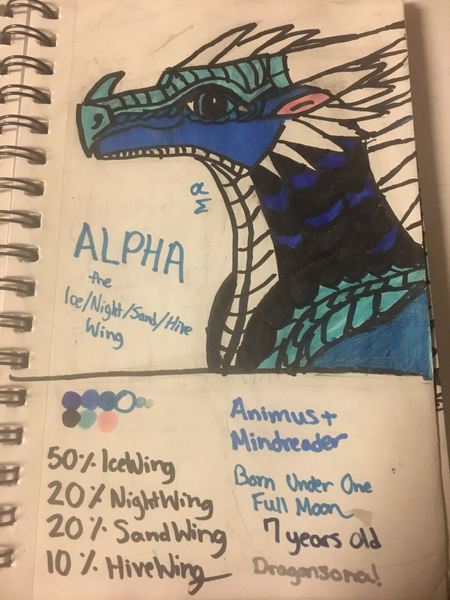 α
Σ
ALPHA
the
Ice/Night/Sand/Hive
Wing
50% IceWing
20% NightWing
20% SandWing
10% HiveWing
Animus +
Mindreader
Born Under One
Full Moon
7 years old
Dragonsona!